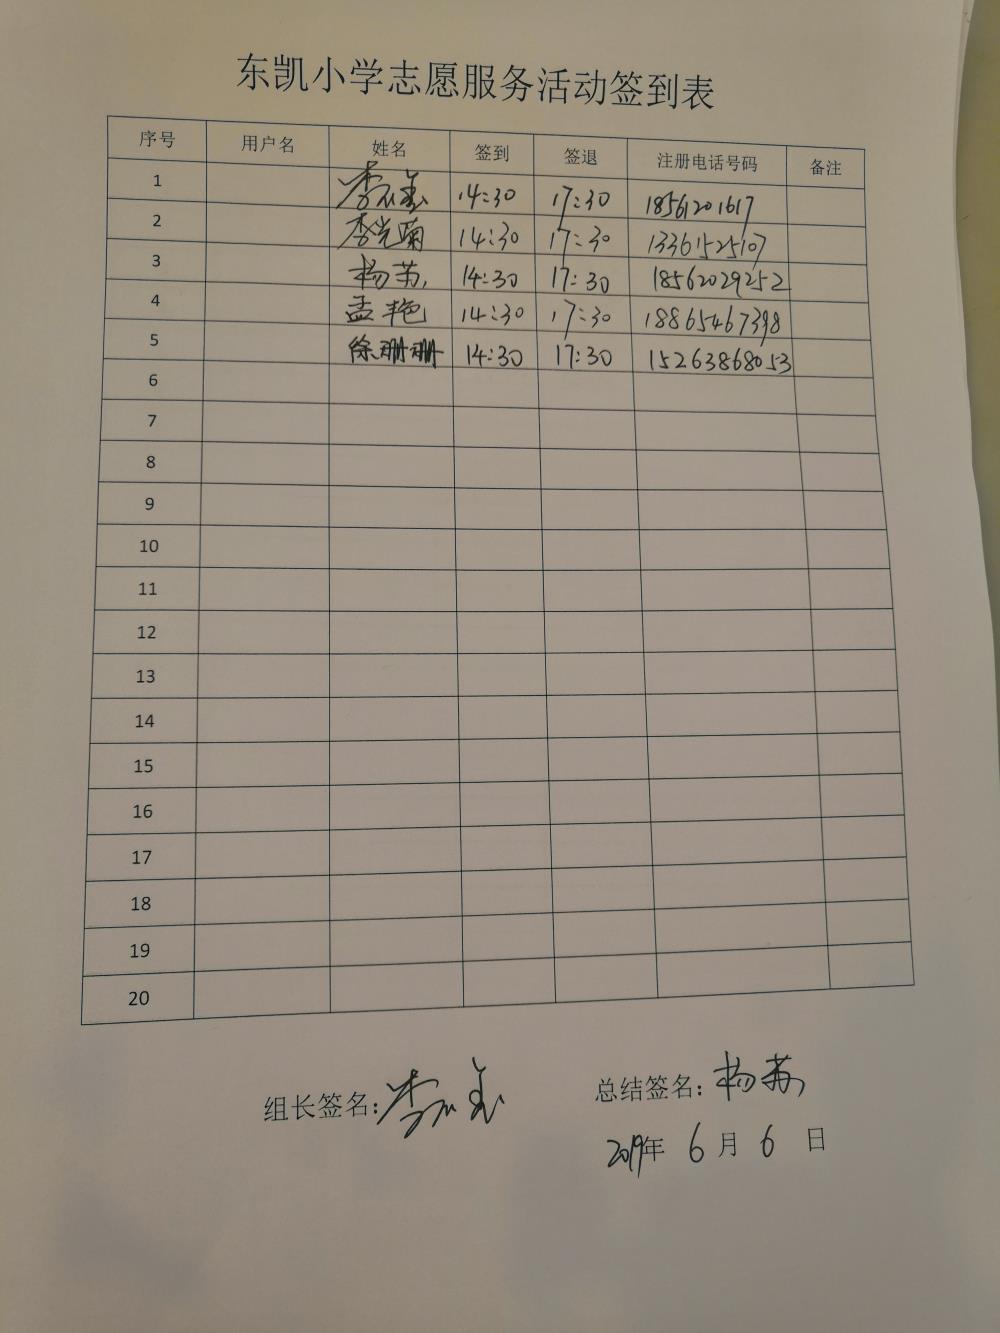 东凯小学志愿服务活动签到表
序号 用户名 姓名 签到 签退 注册电话号码 备注
1 李 14:30 17:30 18561201617
2 李光菊 14:30 17:30 13361525107
3 杨苏 14:30 17:30 18562029252
4 孟艳 14:30 17:30 18865467398
5 徐珊珊 14:30 17:30 15263868053
6
7
8
9
10
11
12
13
14
15
16
17
18
19
20
组长签名:李 总结签名:杨苏
2019年 6 月 6 日